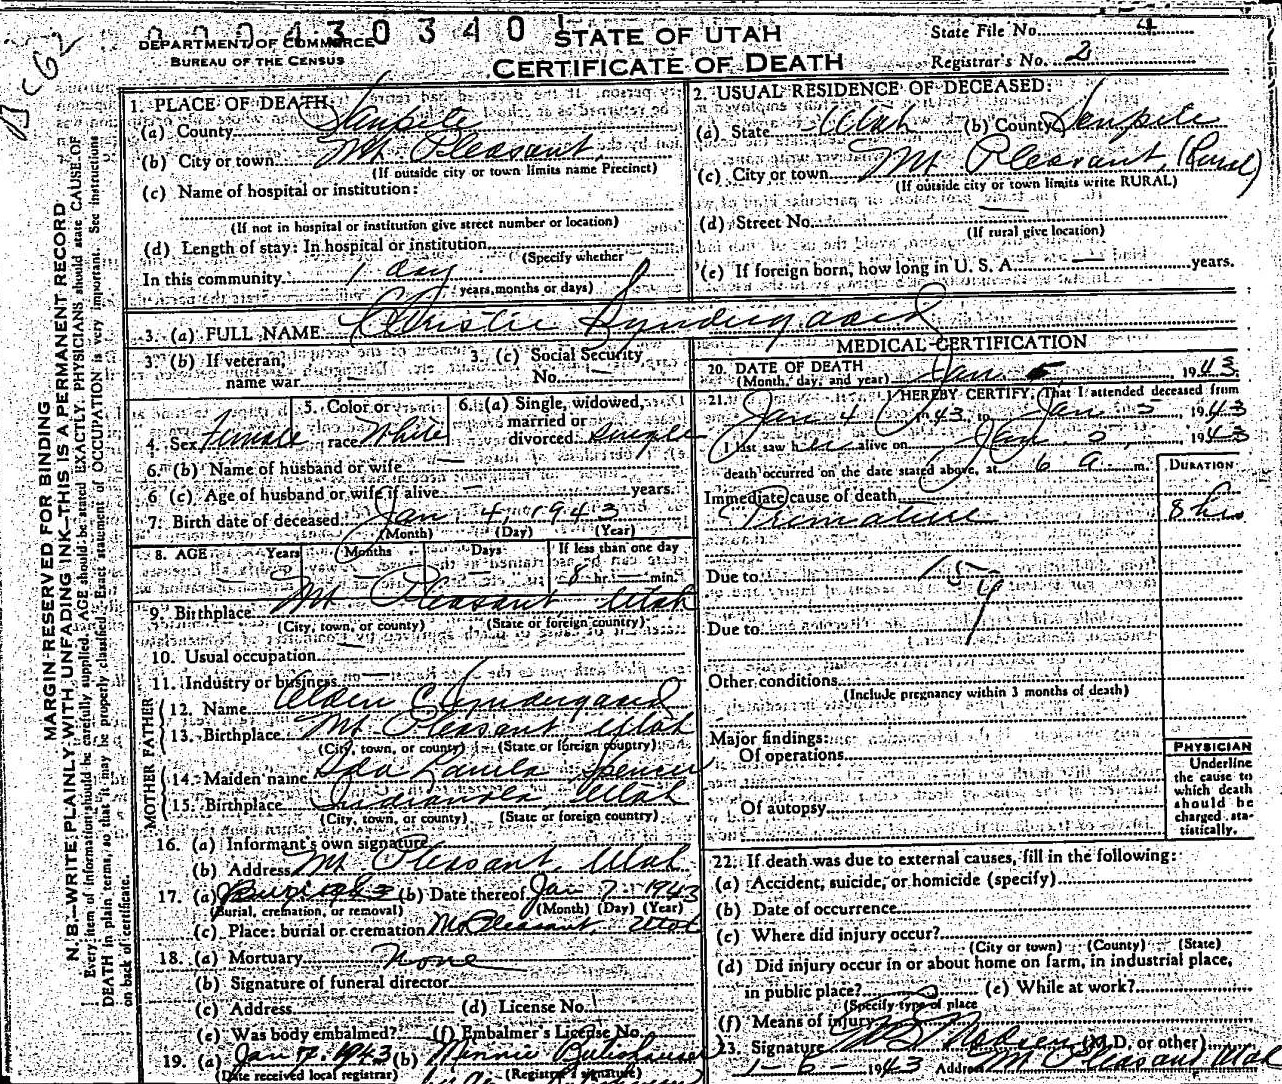 0 0 0 4 3 0 3 4 0 1
DEPARTMENT OF COMMERCE
BUREAU OF THE CENSUS
STATE OF UTAH
CERTIFICATE OF DEATH
State File No. 4
Registrar's No. 2
MARGIN RESERVED FOR BINDING
N. B.—WRITE PLAINLY WITH UNFADING INK—THIS IS A PERMANENT RECORD
Every item of information should be carefully supplied. AGE should be stated EXACTLY. PHYSICIANS should state CAUSE OF
DEATH in plain terms, so that it may be properly classified. Exact statement of OCCUPATION is very important. See instructions
on back of certificate.
1. PLACE OF DEATH
(a) County Sanpete
(b) City or town Mt. Pleasant
(If outside city or town limits name Precinct)
(c) Name of hospital or institution:
(If not in hospital or institution give street number or location)
(d) Length of stay: In hospital or institution
(Specify whether
In this community 1 day
years, months or days)
2. USUAL RESIDENCE OF DECEASED:
(a) State Utah (b) County Sanpete
(c) City or town Mt Pleasant, (Rural)
(If outside city or town limits write RURAL)
(d) Street No. —
(If rural give location)
(e) If foreign born, how long in U. S. A. — years.
3. (a) FULL NAME Christie Syndergaard
3. (b) If veteran, name war —
3. (c) Social Security No. —
4. Sex Female
5. Color or race White
6. (a) Single, widowed, married or divorced single
6. (b) Name of husband or wife —
6 (c) Age of husband or wife if alive — years.
7. Birth date of deceased Jan. 4 1943
(Month) (Day) (Year)
8. AGE Years — Months — Days — If less than one day
8 hr. — min.
9. Birthplace Mt Pleasant Utah
(City, town, or county) (State or foreign country)
10. Usual occupation —
11. Industry or business —
FATHER
12. Name Alden C Syndergaard
13. Birthplace Mt Pleasant Utah
(City, town, or county) (State or foreign country)
MOTHER
14. Maiden name Ida Spencer
15. Birthplace Indianola, Utah
(City, town, or county) (State or foreign country)
16. (a) Informant's own signature
(b) Address Mt Pleasant, Utah
17. (a) Burial (b) Date thereof Jan 7 1943
(Burial, cremation, or removal) (Month) (Day) (Year)
(c) Place: burial or cremation Mt Pleasant, Utah
18. (a) Mortuary None
(b) Signature of funeral director
(c) Address (d) License No.
(e) Was body embalmed? (f) Embalmer's License No.
19. (a) Jan 7, 1943 (b) Minnie
(Date received local registrar) (Registrar's signature)
MEDICAL CERTIFICATION
20. DATE OF DEATH
(Month, day, and year) Jan 5, 1943
21. I HEREBY CERTIFY, That I attended deceased from
Jan 4 1943, to Jan 5, 1943
I last saw her alive on Jan 5, 1943
death occurred on the date stated above, at 6 A m.
DURATION
Immediate cause of death
Premature 8 hrs
Due to 159
Due to
Other conditions
(Include pregnancy within 3 months of death)
Major findings:
Of operations
Of autopsy
PHYSICIAN
Underline
the cause to
which death
should be
charged sta-
tistically.
22. If death was due to external causes, fill in the following:
(a) Accident, suicide, or homicide (specify)
(b) Date of occurrence
(c) Where did injury occur?
(City or town) (County) (State)
(d) Did injury occur in or about home on farm, in industrial place,
in public place? (e) While at work?
(Specify type of place
(f) Means of injury
23. Signature Madsen (M.D. or other)
1-6-1943 Address Mt Pleasant Utah